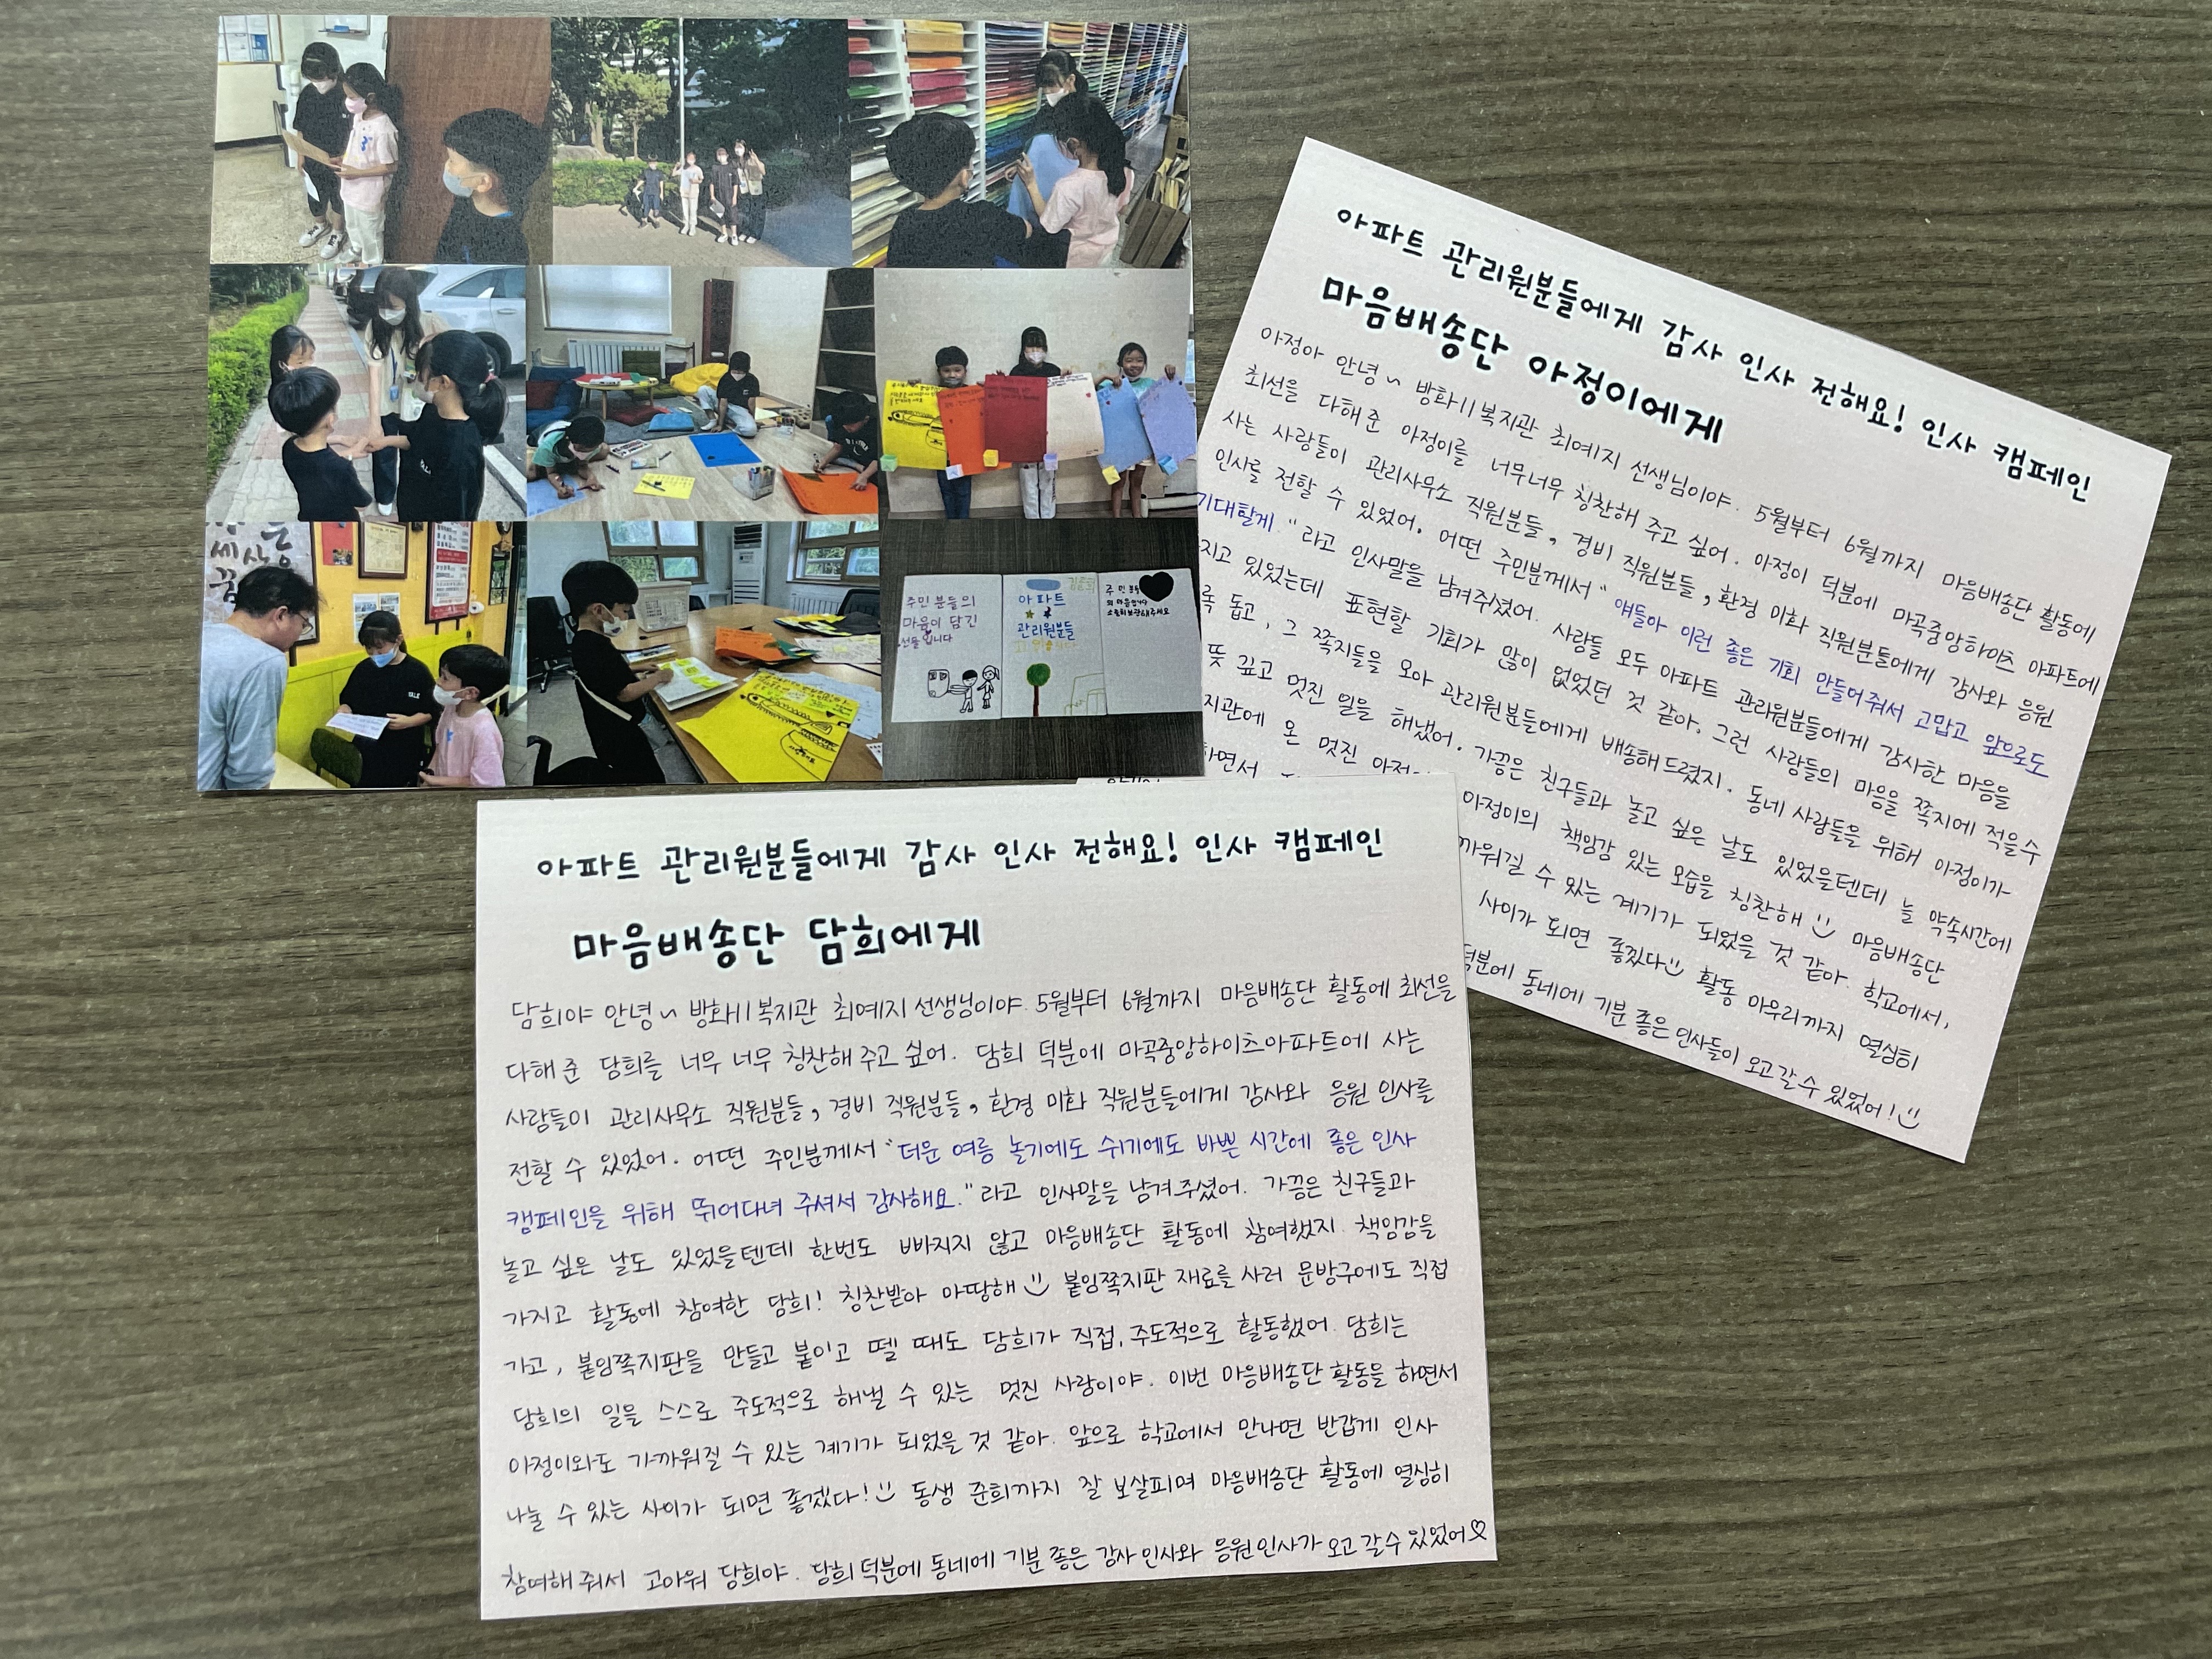 주민분들의
마음이 담긴
선물입니다
아파트
관리원분들
아파트 관리원분들에게 감사 인사 전해요! 인사 캠페인
마음배송단 아정이에게
아정아 안녕~ 방화11복지관 최예지 선생님이야. 5월부터 6월까지 마음배송단 활동에
최선을 다해준 아정이를 너무너무 칭찬해 주고 싶어. 아정이 덕분에 마곡중앙하이츠 아파트에
사는 사람들이 관리사무소 직원분들, 경비 직원분들, 환경 미화 직원분들에게 감사와 응원
인사를 전할 수 있었어. 어떤 주민분께서 "얘들아 이런 좋은 기회 만들어줘서 고맙고 앞으로도
기대할게." 라고 인사말을 남겨주셨어. 사람들 모두 아파트 관리원분들에게 감사한 마음을
지고 있었는데 표현할 기회가 많이 없었던 것 같아. 그런 사람들의 마음을 쪽지에 적을수
록 돕고, 그 쪽지들을 모아 관리원분들에게 배송해드렸지. 동네 사람들을 위해 아정이가
뜻 깊고 멋진 일을 해냈어. 가끔은 친구들과 놀고 싶은 날도 있었을텐데 늘 약속시간에
지관에 온 멋진 아정이의 책임감 있는 모습을 칭찬해 마음배송단
하면서 까워질 수 있는 계기가 되었을 것 같아. 학교에서,
사이가 되면 좋겠다 활동 마무리까지 열심히
덕분에 동네에 기분 좋은 인사들이 오고갈 수 있었어!
아파트 관리원분들에게 감사 인사 전해요! 인사 캠페인
마음배송단 담희에게
담희야 안녕~ 방화11복지관 최예지 선생님이야. 5월부터 6월까지 마음배송단 활동에 최선을
다해 준 담희를 너무 너무 칭찬해 주고 싶어. 담희 덕분에 마곡중앙하이츠아파트에 사는
사람들이 관리사무소 직원분들, 경비 직원분들, 환경 미화 직원분들에게 감사와 응원 인사를
전할 수 있었어. 어떤 주민분께서 "더운 여름 놀기에도 쉬기에도 바쁜 시간에 좋은 인사
캠페인을 위해 뛰어다녀 주셔서 감사해요." 라고 인사말을 남겨주셨어. 가끔은 친구들과
놀고 싶은 날도 있었을텐데 한번도 빠지지 않고 마음배송단 활동에 참여했지. 책임감을
가지고 활동에 참여한 담희! 칭찬받아 마땅해 붙임쪽지판 재료를 사러 문방구에도 직접
가고, 붙임쪽지판을 만들고 붙이고 뗄 때도 담희가 직접, 주도적으로 활동했어. 담희는
담희의 일을 스스로 주도적으로 해낼 수 있는 멋진 사람이야. 이번 마음배송단 활동을 하면서
아정이와도 가까워질 수 있는 계기가 되었을 것 같아. 앞으로 학교에서 만나면 반갑게 인사
나눌 수 있는 사이가 되면 좋겠다! 동생 준희까지 잘 보살피며 마음배송단 활동에 열심히
참여해 줘서 고마워 담희야. 담희 덕분에 동네에 기분 좋은 감사 인사와 응원인사가 오고 갈수 있었어♡